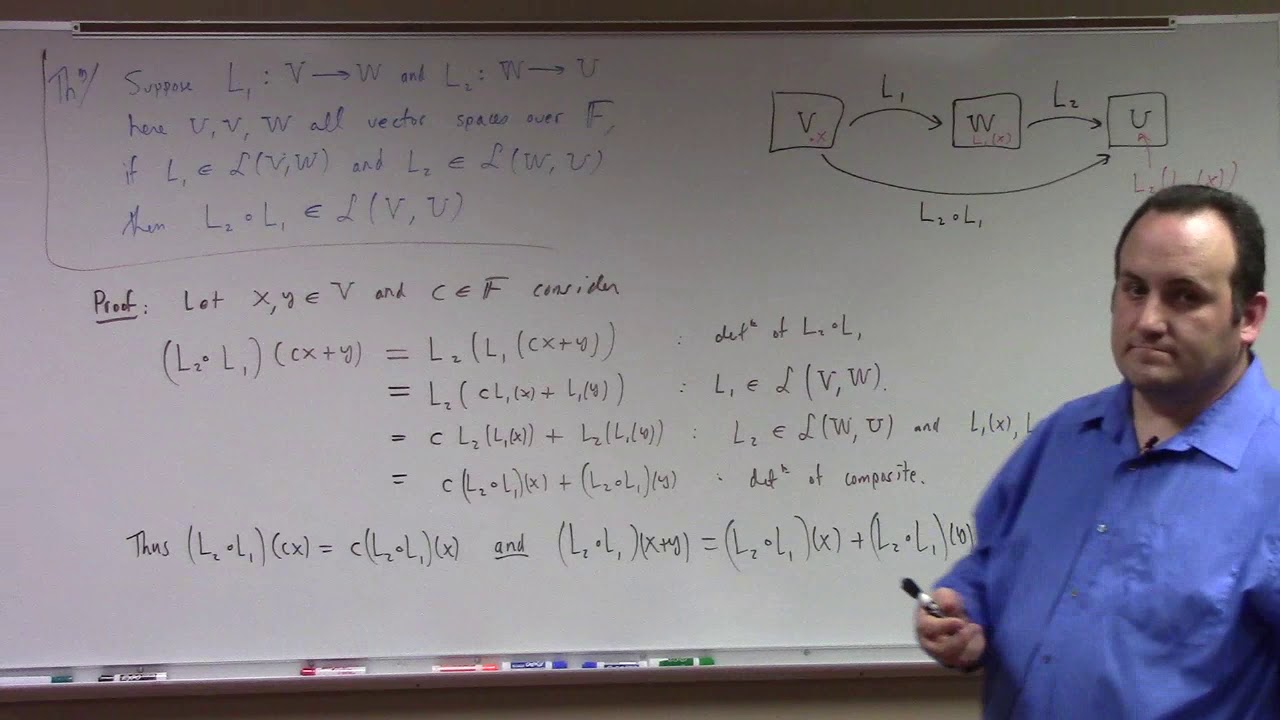 Thᵐ/ Suppose L₁ : V ⟶ W and L₂ : W ⟶ U
here U, V, W all vector spaces over 𝔽,
if L₁ ∈ ℒ(V,W) and L₂ ∈ ℒ(W, U)
then L₂∘L₁ ∈ ℒ(V, U)
L₁ L₂
V W U
·x L₁(x)
L₂(L₁(x))
L₂∘L₁
Proof: Let x, y ∈ V and c ∈ 𝔽 consider
(L₂∘L₁)(cx+y) = L₂(L₁(cx+y)) : defⁿ of L₂∘L₁
= L₂(cL₁(x) + L₁(y)) : L₁ ∈ ℒ(V, W).
= c L₂(L₁(x)) + L₂(L₁(y)) : L₂ ∈ ℒ(W, U) and L₁(x), L
= c(L₂∘L₁)(x) + (L₂∘L₁)(y) : defⁿ of composite.
Thus (L₂∘L₁)(cx) = c(L₂∘L₁)(x) and (L₂∘L₁)(x+y) = (L₂∘L₁)(x) + (L₂∘L₁)(y)